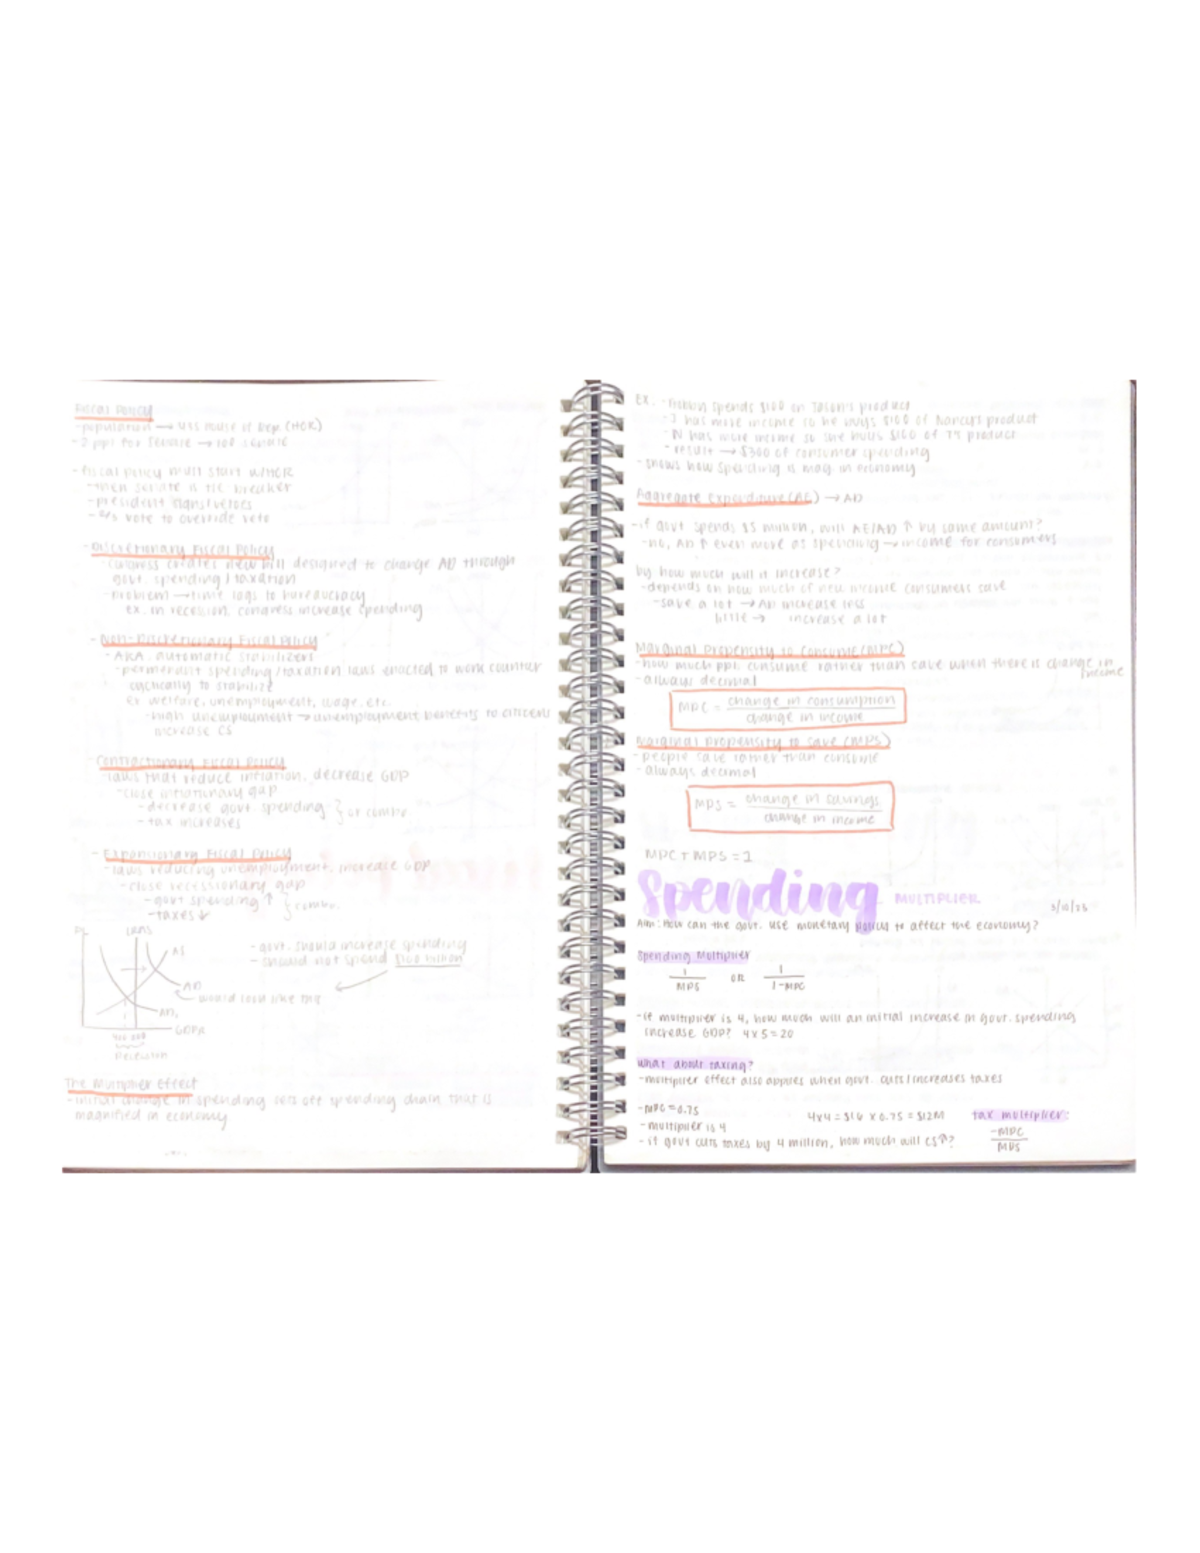 Fiscal Policy
-population → U.S. House of Rep. (HOR)
-2 ppl for senate → 100 senate
-fiscal policy must start w/HOR
-then senate is tie-breaker
-president signs/vetoes
-vote to override veto
-Discretionary Fiscal Policy
-congress creates new bill designed to change AD through
govt. spending/taxation
-problem → time lags to bureaucracy
ex. in recession, congress increase spending
-Non-Discretionary Fiscal Policy
-AKA. automatic stabilizers
-permanent spending/taxation laws enacted to work counter
cyclically to stabilize
Ex. welfare, unemployment, wage, etc.
-high unemployment → unemployment benefits to citizens
increase CS
-Contractionary Fiscal Policy
-laws that reduce inflation, decrease GDP
-close inflationary gap
-decrease govt. spending } or combo.
-tax increases
-Expansionary Fiscal Policy
-laws reducing unemployment, increase GDP
-close recessionary gap
-govt spending ↑ } combo.
-taxes ↓
PL LRAS
AS
AD
AD₁
GDPR
Recession
-govt. should increase spending
-should not spend $100 billion
would look like this
The Multiplier Effect
-initial change in spending sets off spending chain that is
magnified in economy
EX. - spends $100 on Jason's product
-J has more income so he buys $100 of Nancy's product
-N has more income so she buys $100 of product
-result → $300 of consumer spending
-shows how spending is mag. in economy
Aggregate Expenditure (AE) → AD
-if govt spends $5 million, will AE/AD ↑ by same amount?
-no, AD ↑ even more as spending → income for consumers
by how much will it increase?
-depends on how much of new income consumers save
-save a lot → AD increase less
little → increase a lot
Marginal Propensity to Consume (MPC)
-how much ppl. consume rather than save when there is change in
income
-always decimal
MPC = change in consumption
change in income
Marginal Propensity to Save (MPS)
-people save rather than consume
-always decimal
MPS = change in savings
change in income
MPC + MPS = 1
Spending MULTIPLIER 3/10/25
Aim: How can the govt. use monetary policy to affect the economy?
Spending Multiplier
1 OR 1
MPS 1-MPC
-if multiplier is 4, how much will an initial increase in govt. spending
increase GDP? 4 x 5 = 20
what about taxing?
-multiplier effect also applies when govt. cuts/increases taxes
-MPC = 0.75
-multiplier is 4
-if govt cuts taxes by 4 million, how much will CS ↑?
4x4 = $16 x 0.75 = $12M
tax multiplier:
-MPC
MPS